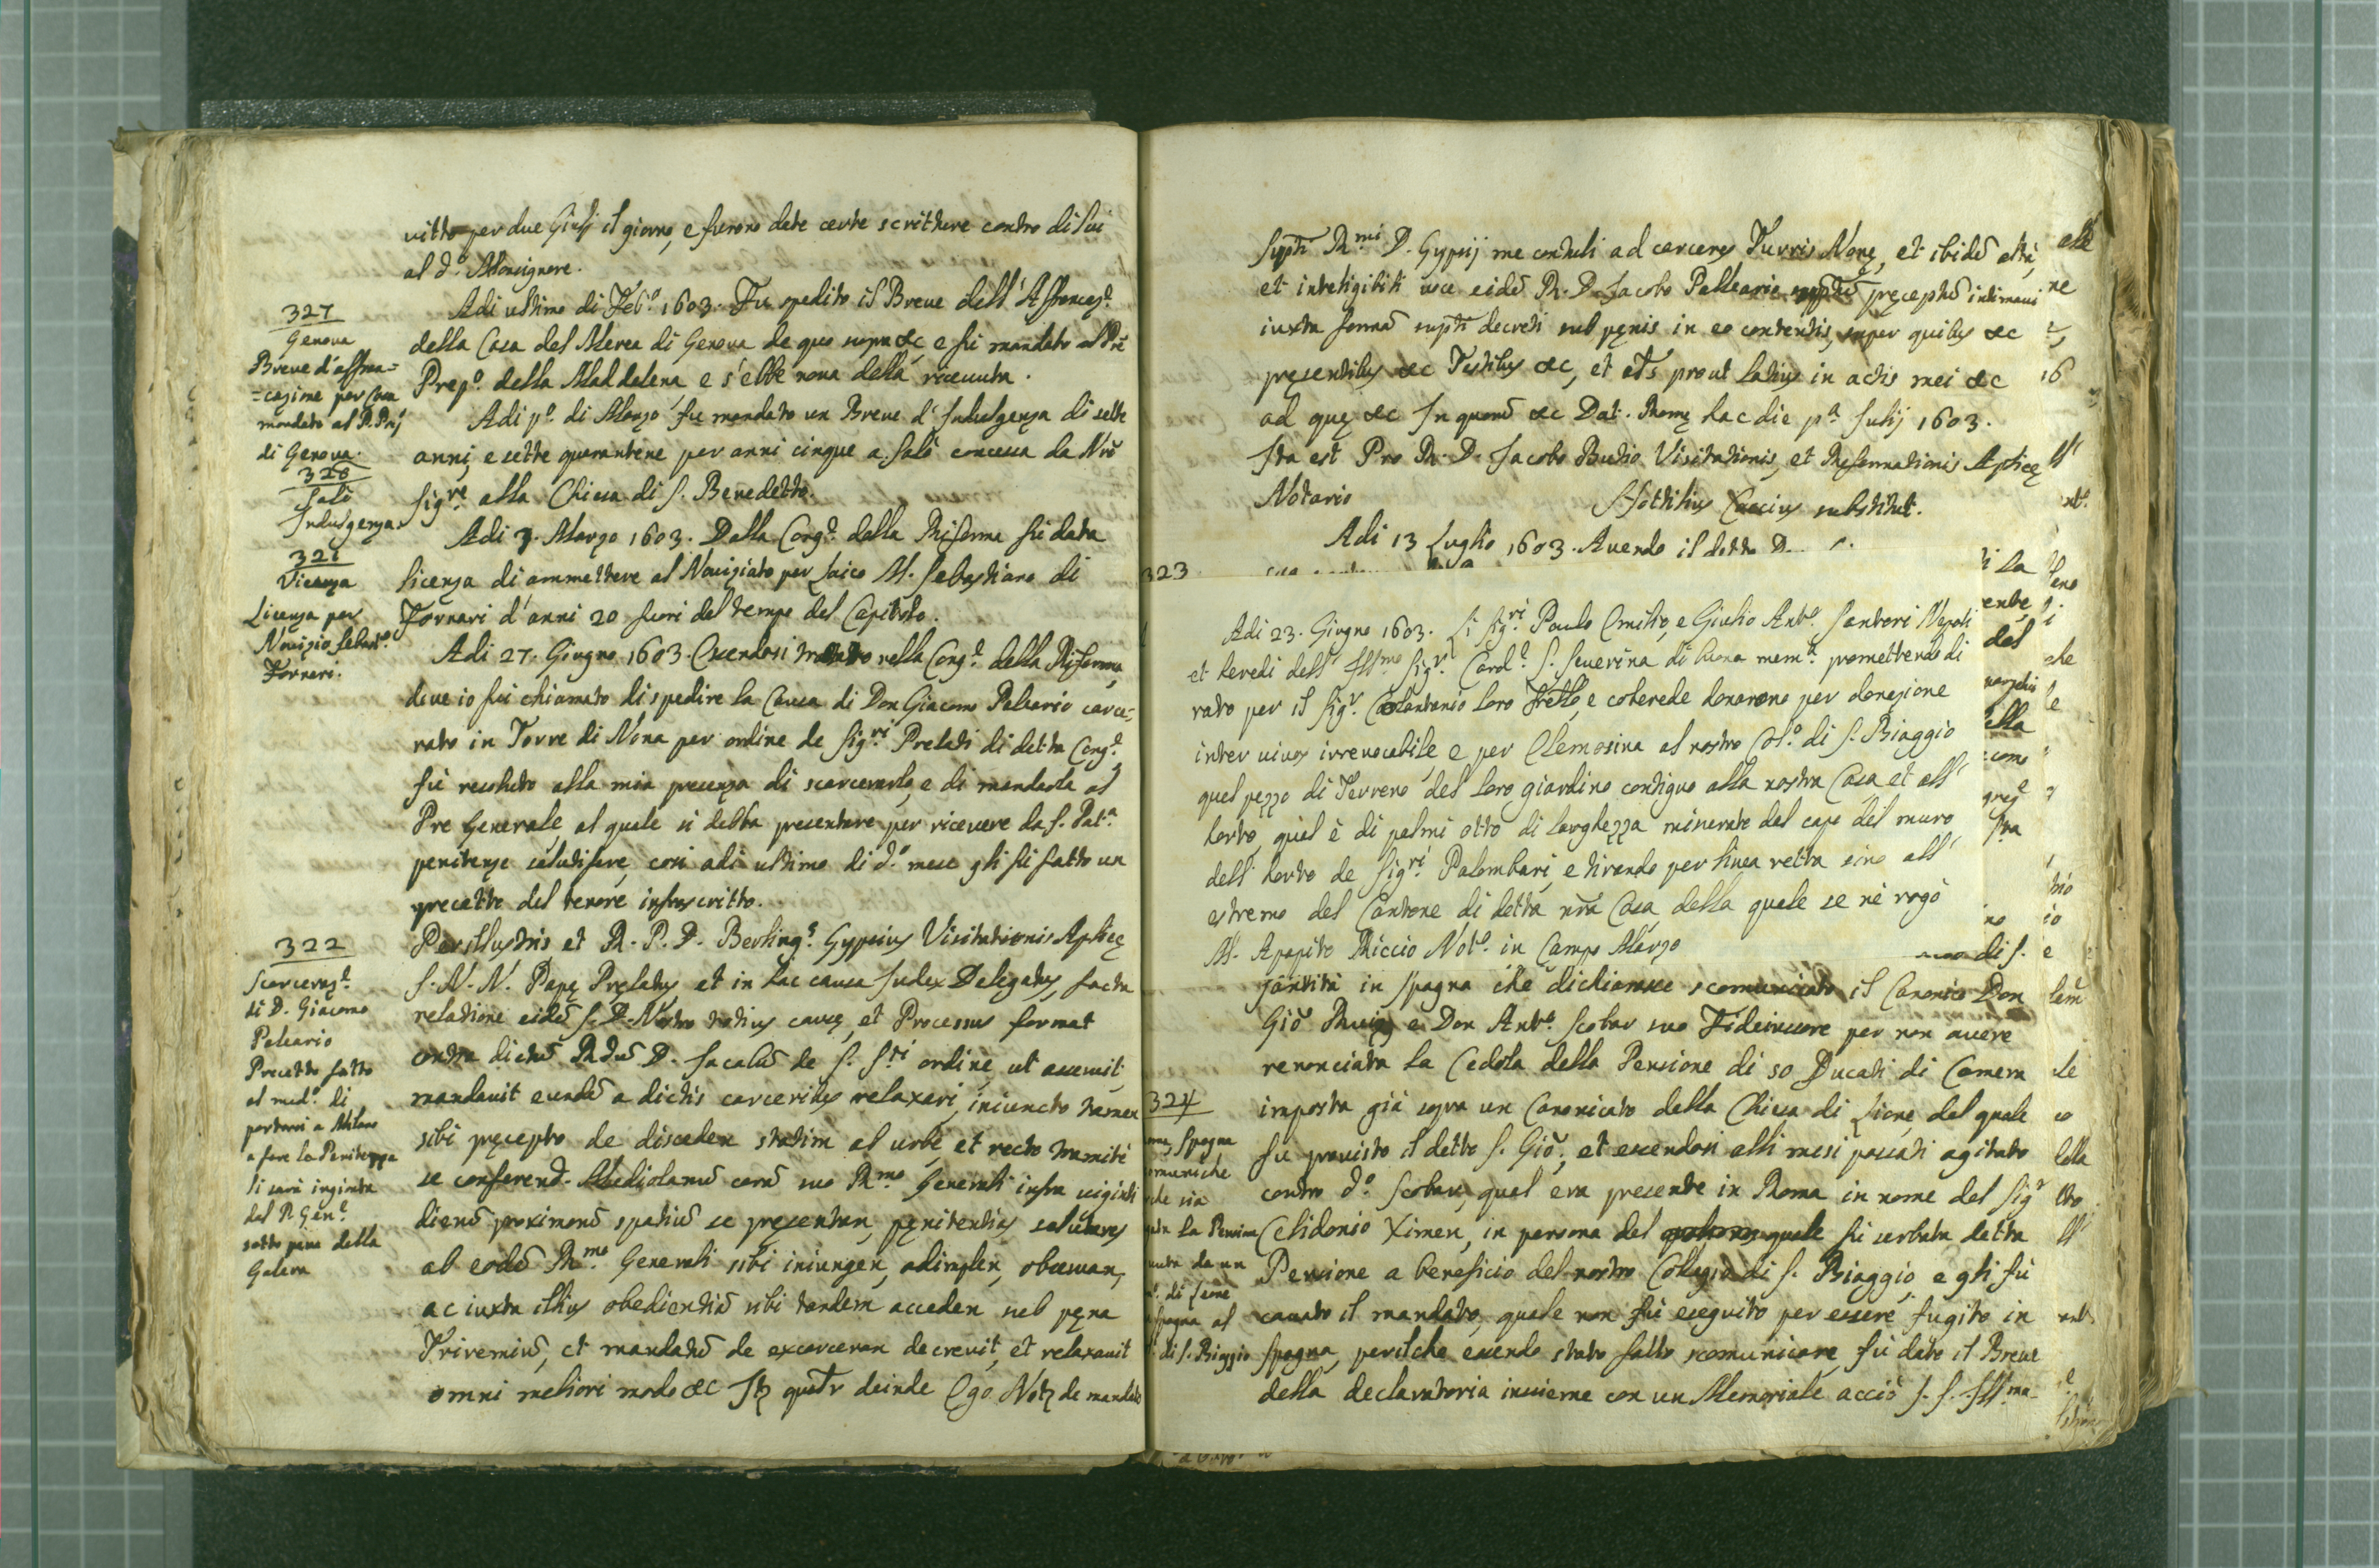 vitto per due Giulij il giorno, e furono date certe scritture contro di lui
al d.º Monsignore.
327
Genova
Breve d'affran=
=cazione per Casa
mandato al P. Prep.
di Genova.
Adi ultimo di Feb.º 1603. Fu spedito il Breve dell'Affrancaz.e
della Casa del Merea di Genova de quo supra &c e fu mandato al Pre
Prep.º della Maddalena e s'ebbe nova della ricevuta.
328
Salò
Indulgenza.
Adi p.º di Marzo fu mandato un Breve d'Indulgenza di sette
anni, e sette quarantene per anni cinque a Salò concessa da Nrõ
Sig.re alla Chiesa di S. Benedetto.
321
Vicenza
Licenza per
Novizio Sebast.º
Fornari.
Adi 3. Marzo 1603. Dalla Cong.e della Riforma fu data
licenza di ammettere al Noviziato per Laico M. Sebastiano di
Fornari d'anni 20 fuori del tempo del Capitolo.
Adi 27. Giugno 1603. Essendosi trattato nella Cong.e della Riforma,
dove io fui chiamato di spedire la Causa di Don Giacomo Paleario carce=
rato in Torre di Nona per ordine de Sig.ri Prelati di detta Cong.e
fù resoluto alla mia presenza di scarcerarlo, e di mandarlo al
Pre Generale al quale si debba presentare per ricevere da S. Pat.a
penitenze salutifere, così adi ultimo di d.º mese gli fu fatto un
precetto del tenore infrascritto.
322
Scarceraz.e
di D. Giacomo
Paleario
Precetto fatto
al med.º di
portarsi a Milano
a fare la Penitenza
li sarà ingionta
dal P. Gen.e
sotto pena della
Galera
Perillustris et R. P. D. Berling.s Gypsius Visitationis Aplicę
S. N. N. Papę Prelatus et in hac causa Iudex Delegatus, facta
relatione eidē S. D. Nostro totius causę, et Processus format
contra dictū Rdū D. Iacobū de S. S.ti ordine, ut asseruit,
mandavit eundē a dictis carceribus relaxari, iniuncto tamen
sibi pręcepto de disceden statim ab urbe, et recto tramite
se conferend. Mediolanū corā suo R.mo Generali infra viginti
dierū proximorū spatiū se pręsentan, pęnitentias salutares
ab eodē R.mo Generali sibi iniungen, adimplen, observan,
ac iuxta illius obedientiā sibi tandem acceden sub pęna
Trivemiū, et mandatū de excarceran decrevit, et relaxavit
omni meliori modo &c Itz quatr deinde Ego Notz de mandato
Supti R.mi D. Gypsij me contuli ad carceres Turris Nonę, et ibidē alta,
et inteligibili voce eidē R. D. Iacobo Palleario supptū pręceptū intimavi
iuxta formā supti decreti sub pęnis in eo contentis, super quibus &c
pręsentibus &c Testibus &c, et als prout latius in actis mei &c
ad quę &c In quorū &c Dat. Romę hac die p.a Iulij 1603.
Ita est Pro R. D. Iacobo Butio Visitationis, et Reformationis Aplicę
Notario Hottilius Caccius substitut.
Adi 13 Luglio 1603. Avendo il detto D.
323
Adi 23. Giugno 1603. Li Sig.ri Paulo Emilio, e Giulio Ant.º Santori Nepoti
et heredi dell'Ill.mo Sig.r Card.e S. Severina di buona mem.a promettendo di
rato per il Sig.r Colantonio loro Frello, e coherede donarono per donazione
inter vivos irrevocabile e per Elemosina al nostro Col.º di S. Biaggio
quel pezzo di Terreno del loro giardino contiguo alla nostra Casa et all'
horto, qual è di palmi otto di larghezza minerato dal capo del muro
dell'horto de Sig.ri Palombari, e tirando per linea retta sino all'
estremo del Cantone di detta nrā Casa della quale se ne rogò
M. Agapito Riccio Not.º in Campo Marzo
di S.
santità in Spagna che dichiarasse scomunicato il Canonico Don
Giõ Ruiz e Don Ant.º Scobar suo Fideiussore per non avere
renonciata la Cedola della Pensione di 50 Ducati di Camera
324
imposta già sopra un Canonicato della Chiesa di Lione, del quale
fu provisto il detto S. Giõ, et essendosi alli mesi passati agitato
contro d.º Scobar, qual era presente in Roma in nome del Sig.r
Celidonio Ximen, in persona del quale fu serbata detta
Pensione a beneficio del nostro Collegio di S. Biaggio, e gli fù
cavato il mandato, quale non fù eseguito per essere fugito in
di S. Biaggio
Spagna, perilche essendo stato fatto scomunicare, fù dato il Breve
della declaratoria insieme con un Memoriale acciò S. S. Ill.ma